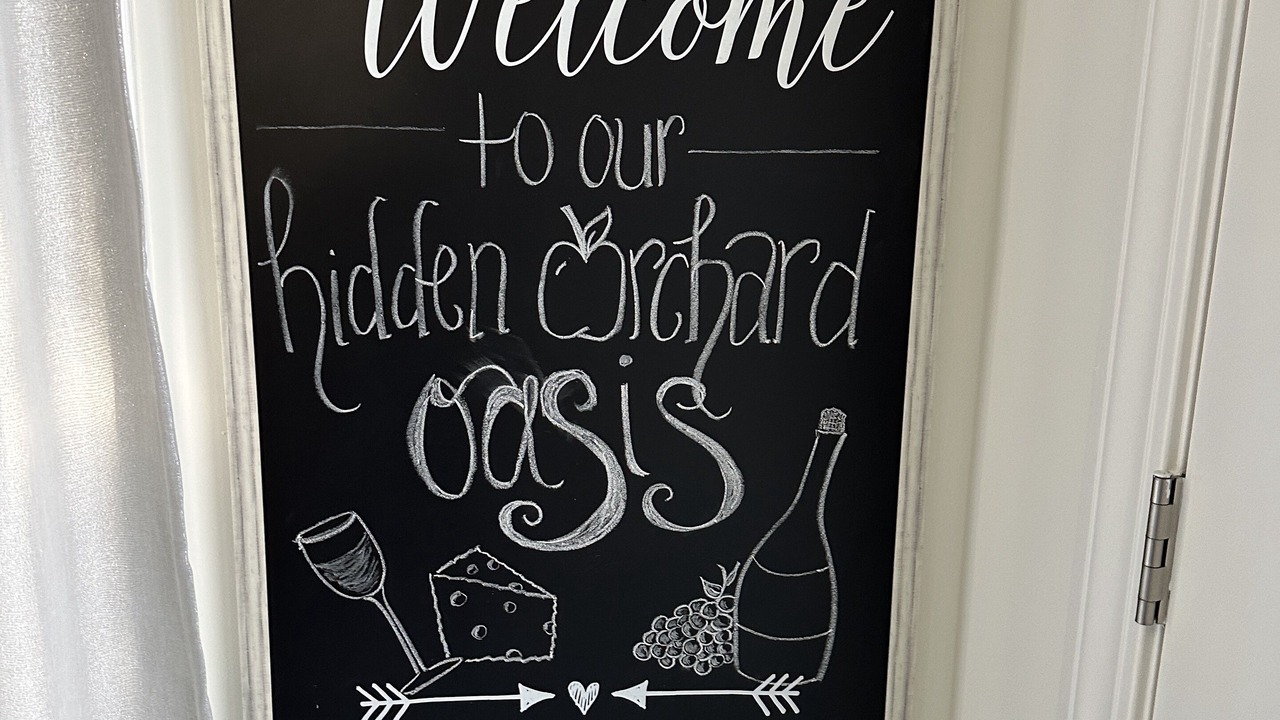 Welcome
to our
hidden Orchard
oasis